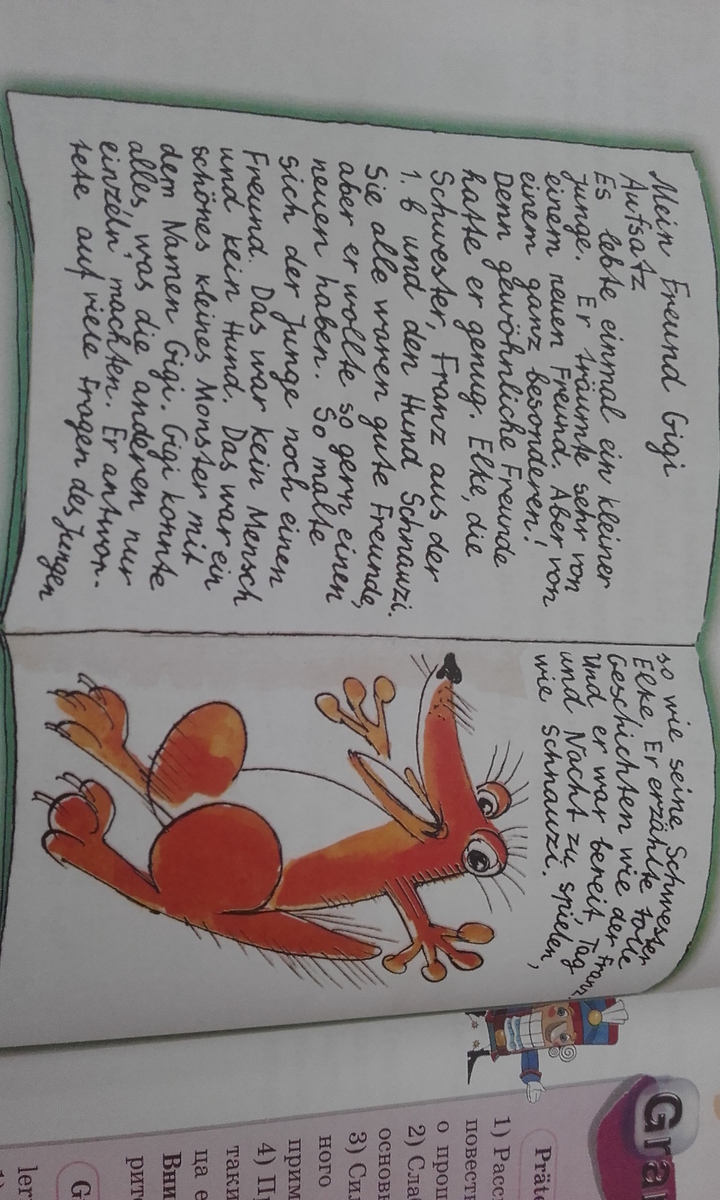 Mein Freund Gigi
Aufsatz
Es lebte einmal ein kleiner
Junge. Er träumte sehr von
einem neuen Freund. Aber von
einem ganz besonderen!
Denn gewöhnliche Freunde
hatte er genug. Elke, die
Schwester, Franz aus der
1. b und den Hund Schnauzi.
Sie alle waren gute Freunde,
aber er wollte so gern einen
neuen haben. So malte
sich der Junge noch einen
Freund. Das war kein Mensch
und kein Hund. Das war ein
schönes kleines Monster mit
dem Namen Gigi. Gigi konnte
alles, was die anderen nur
einzeln machten. Er antwor-
tete auf viele Fragen des Jungen
so wie seine Schwester
Elke. Er erzählte tolle
Geschichten wie der Franz.
Und er war bereit, Tag
und Nacht zu spielen,
wie Schnauzi.
Gra
Prä
1) Расс
повест
о прош
2) Сла
основ
3) Си
ного
прим
4) П
таки
Вни
ца е
рит
G
ler